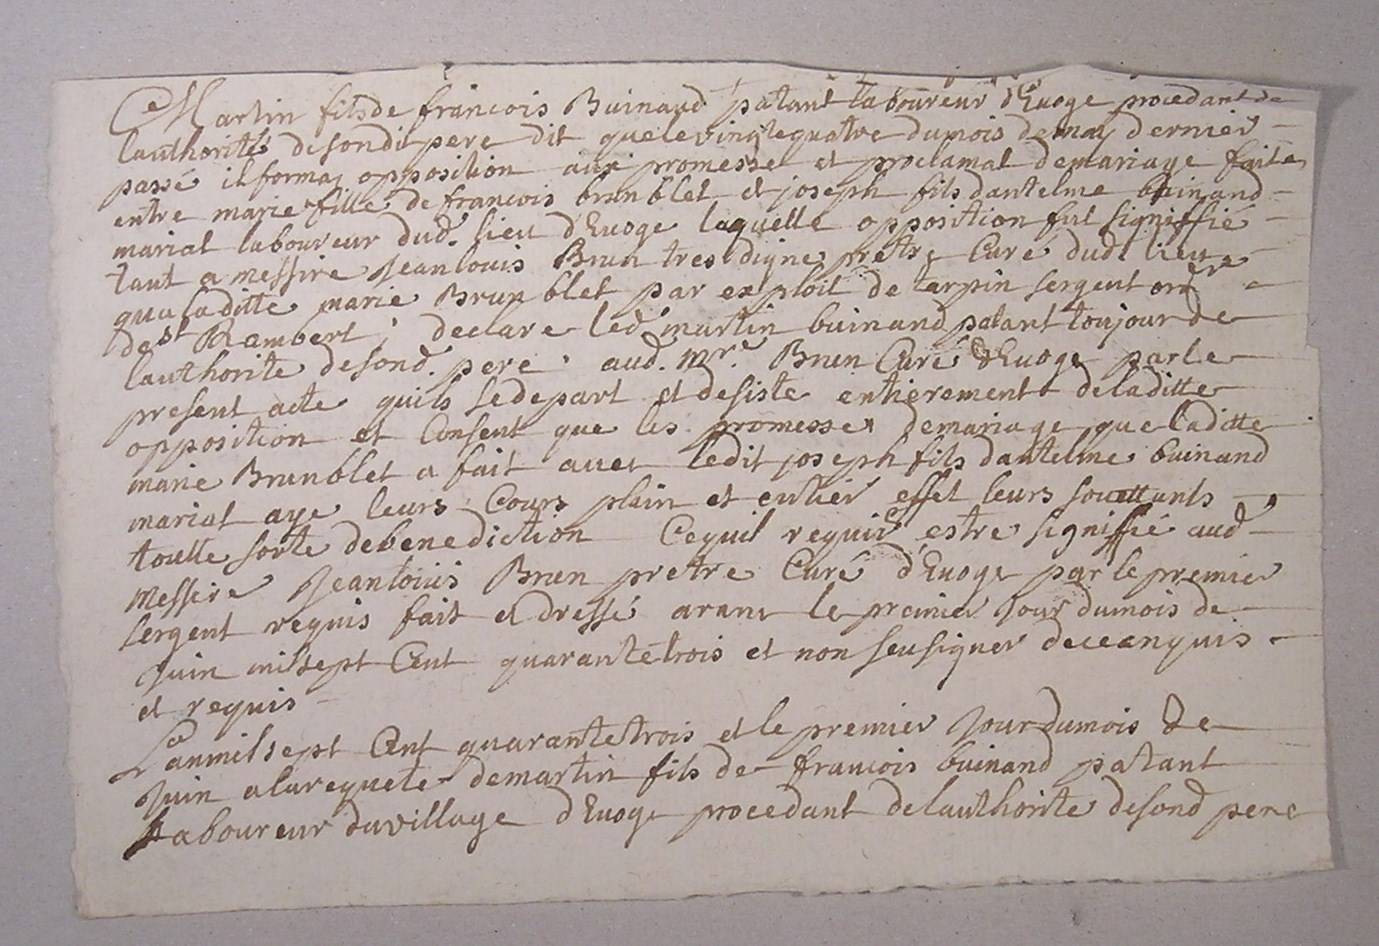 Martin fils de francois Buinand patant laboureur d'Evoge procedant de
lauthorité desondit pere dit quele vingtequatre dumois demay dernier
passé ilforma opposition aux promesse et proclamat demariage faite
entre marie fille de francois brunblet et joseph fils dantelme buinand
mariat laboureur dud. lieu d'Evoge laquelle opposition fut signiffié
tant a messire Jeanlouis Brun tres digne pretre Curé dudt lieu
qua laditte marie Brunblet par exploit de tarpin sergent ordre
de st Rambert, declare led martin buinand patant toujour de
lauthorite desond. pere. aud. mre. Brun Curé d'Evoge parle
present acte quils sedepart et desiste entierement deladitte
opposition et Consent que les promesses demariage que laditte
marie Brunblet a fait avec ledit joseph fils dantelme buinand
mariat aye leurs Cours plain et entier effet leurs souettants
toutte sorte debenediction Cequil requir estre signiffié aud
messire Jeanlouis Brun pretre Curé d'Evoge par le premier
sergent requis fait et dressé avant le premier Jour dumois de
Juin milsept Cent quarantetrois et non seusigner deceanquis
et requis
Lanmilsept Cent quarantetrois et le premier Jour dumois de
Juin alarequete demartin fils de francois buinand patant
Laboureur duvillage d'Evoge procedant delauthorite desond pere